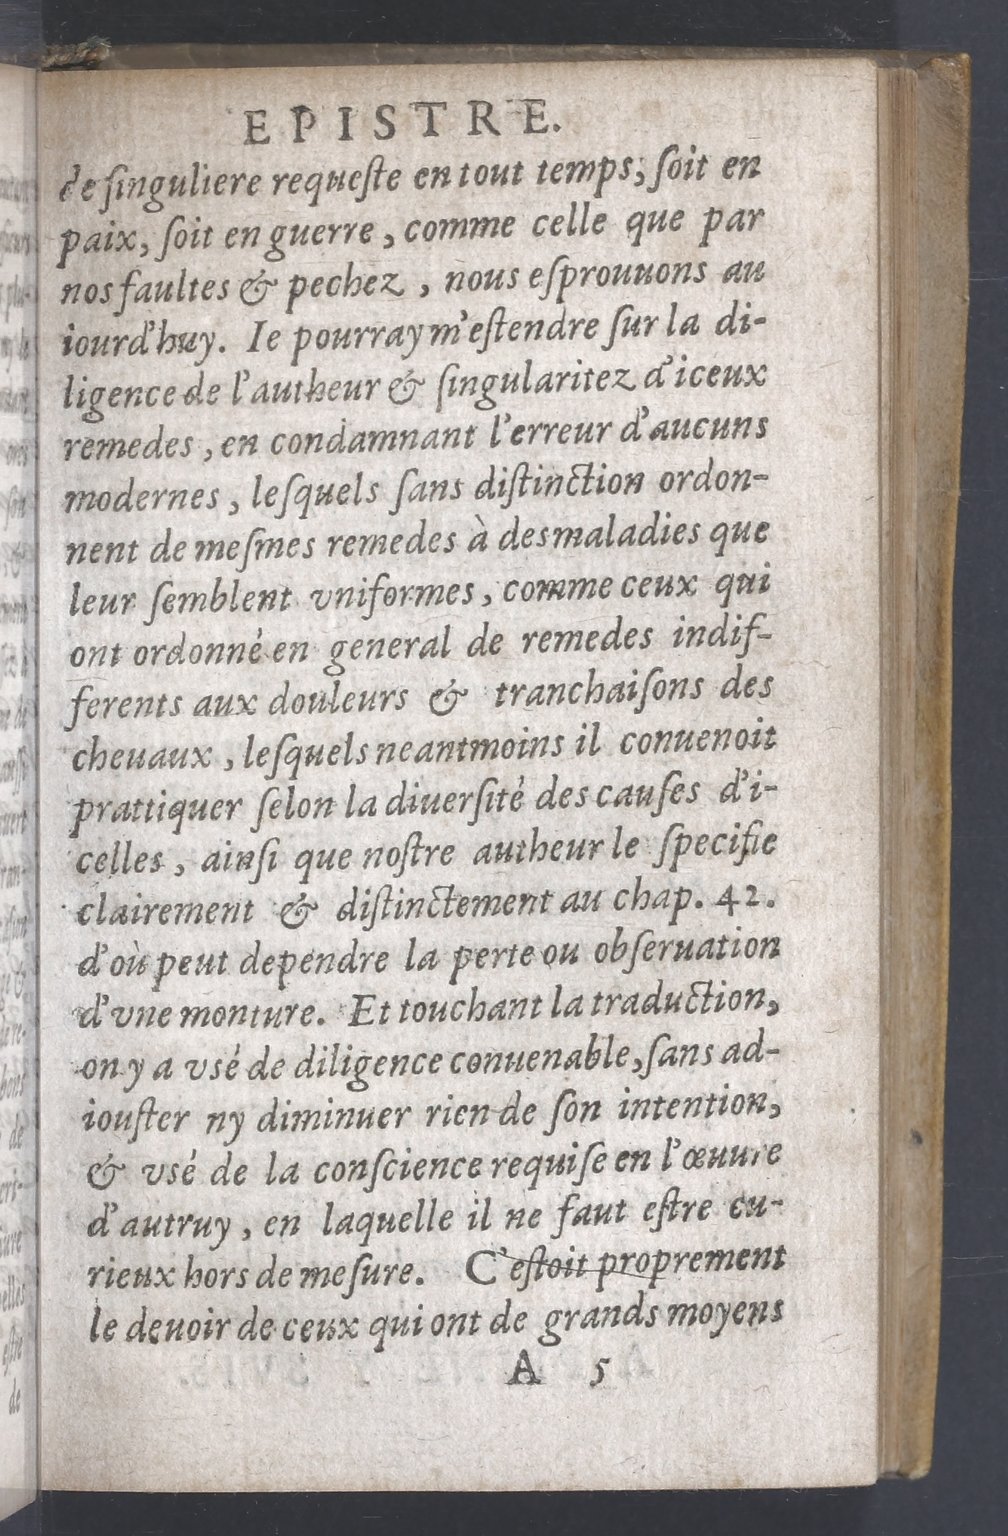 EPISTRE.
de ſinguliere requeſte en tout temps, ſoit en
paix, ſoit en guerre, comme celle que par
nos faultes & pechez, nous eſprouuons au
iourd'huy. Ie pourray m'eſtendre ſur la di-
ligence de l'autheur & ſingularitez d'iceux
remedes, en condamnant l'erreur d'aucuns
modernes, leſquels ſans diſtinction ordon-
nent de meſmes remedes à des maladies que
leur ſemblent vniformes, comme ceux qui
ont ordonné en general de remedes indif-
ferents aux douleurs & tranchaiſons des
cheuaux, leſquels neantmoins il conuenoit
prattiquer ſelon la diuerſité des cauſes d'i-
celles, ainſi que noſtre autheur le ſpecifie
clairement & diſtinctement au chap. 42.
d'où peut dependre la perte ou obſeruation
d'vne monture. Et touchant la traduction,
on y a vsé de diligence conuenable, ſans ad-
iouſter ny diminuer rien de ſon intention,
& vsé de la conſcience requiſe en l'œuure
d'autruy, en laquelle il ne faut eſtre cu-
rieux hors de meſure. C'eſtoit proprement
le deuoir de ceux qui ont de grands moyens
A 5